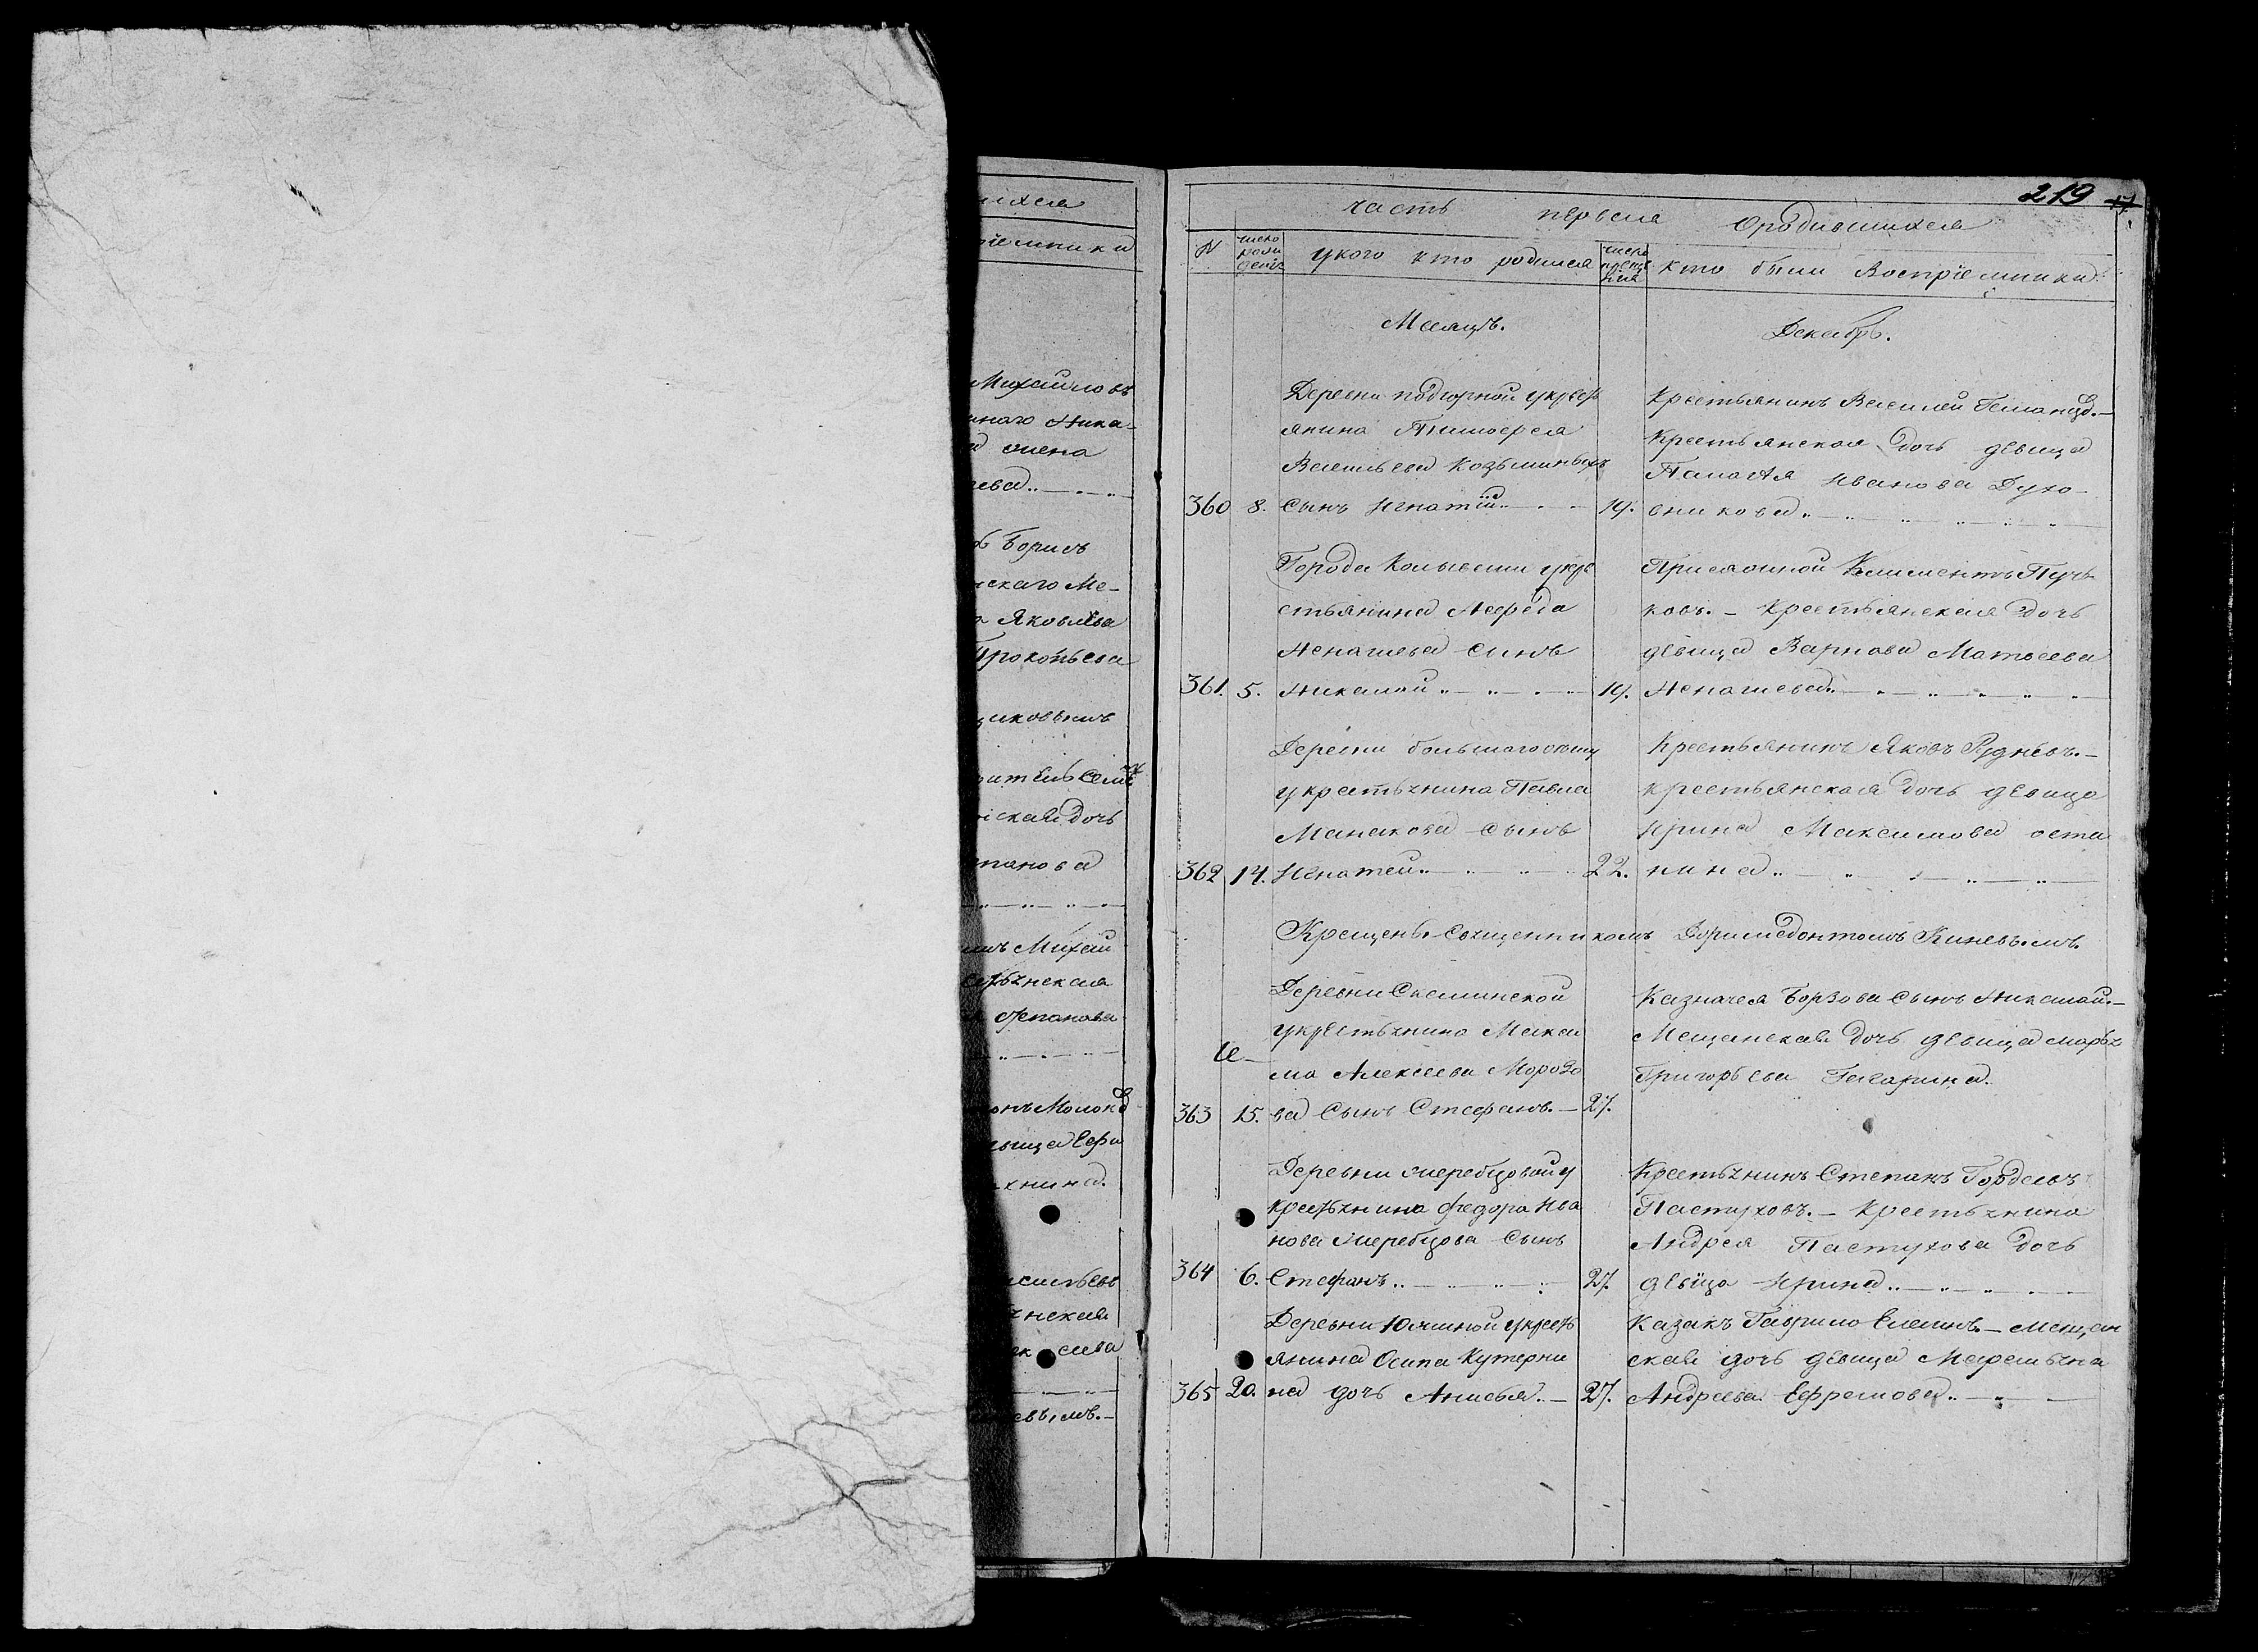 ихся
ріемники
Михайловъ
наго Нико-
жена
ева
Борисъ
скаго Ме-
Яковлева
Прокопьева
щиковымъ
ская дочь
панова
Михай
стьянская
Степанова
Молоко
вица Евфи
нина.
сильевъ
янская
евымъ.-
219
часть первая о родившихся
№ число рожденія у кого кто родился число крещенія кто были Воспріемники
Месяцъ. Декабрь.
Деревни подгорной укресть
янина Тимофея
Васильева Козьминыхъ
360 8. сынъ Игнатій 19.
Крестьянинъ Василей .-
Крестьянская дочь девица
Палагѣя Иванова Духо-
вникова
Города Колывани укре
стьянина
Ненашева сынъ
361. 5. Николай 19.
Климентъ Пуч-
ковъ. - Крестьянская дочь
девица Варвара Матвеева
Ненашева
Деревни большаго оешу
укрестьянина Павла
Манакова сынъ
362 14. Игнатей 22.
Крестьянинъ Яковъ Рудневъ.-
крестьянская дочь девица
Ирина Максимова оста
нина
Крещены Священникомъ Доримедонтомъ Киневымъ.
Деревни Скалинской
укрестьянина Макси
ма Алексеева Морозо
363 15. ва Сынъ Стефанъ.- 27.
Казначея Борзова сынъ Николай.-
Мещанская дочь девица марья
Григорьева Гагарина.
Деревни жеребцовой у
крестьянина Федора Ива
нова Жеребцова Сынъ
364 6. Стефанъ 27.
Крестьянинъ Степанъ Гордеевъ
Пастуховъ. - Крестьянина
Андрея Пастухова дочь
девица Ирина
Деревни Юрминой укресть
янина Осипа Кутерни
365 20. на дочь Анисья.- 27.
Казакъ Гаврило Елелинъ.- Мещан
ская дочь девица
Андреева Ефремова